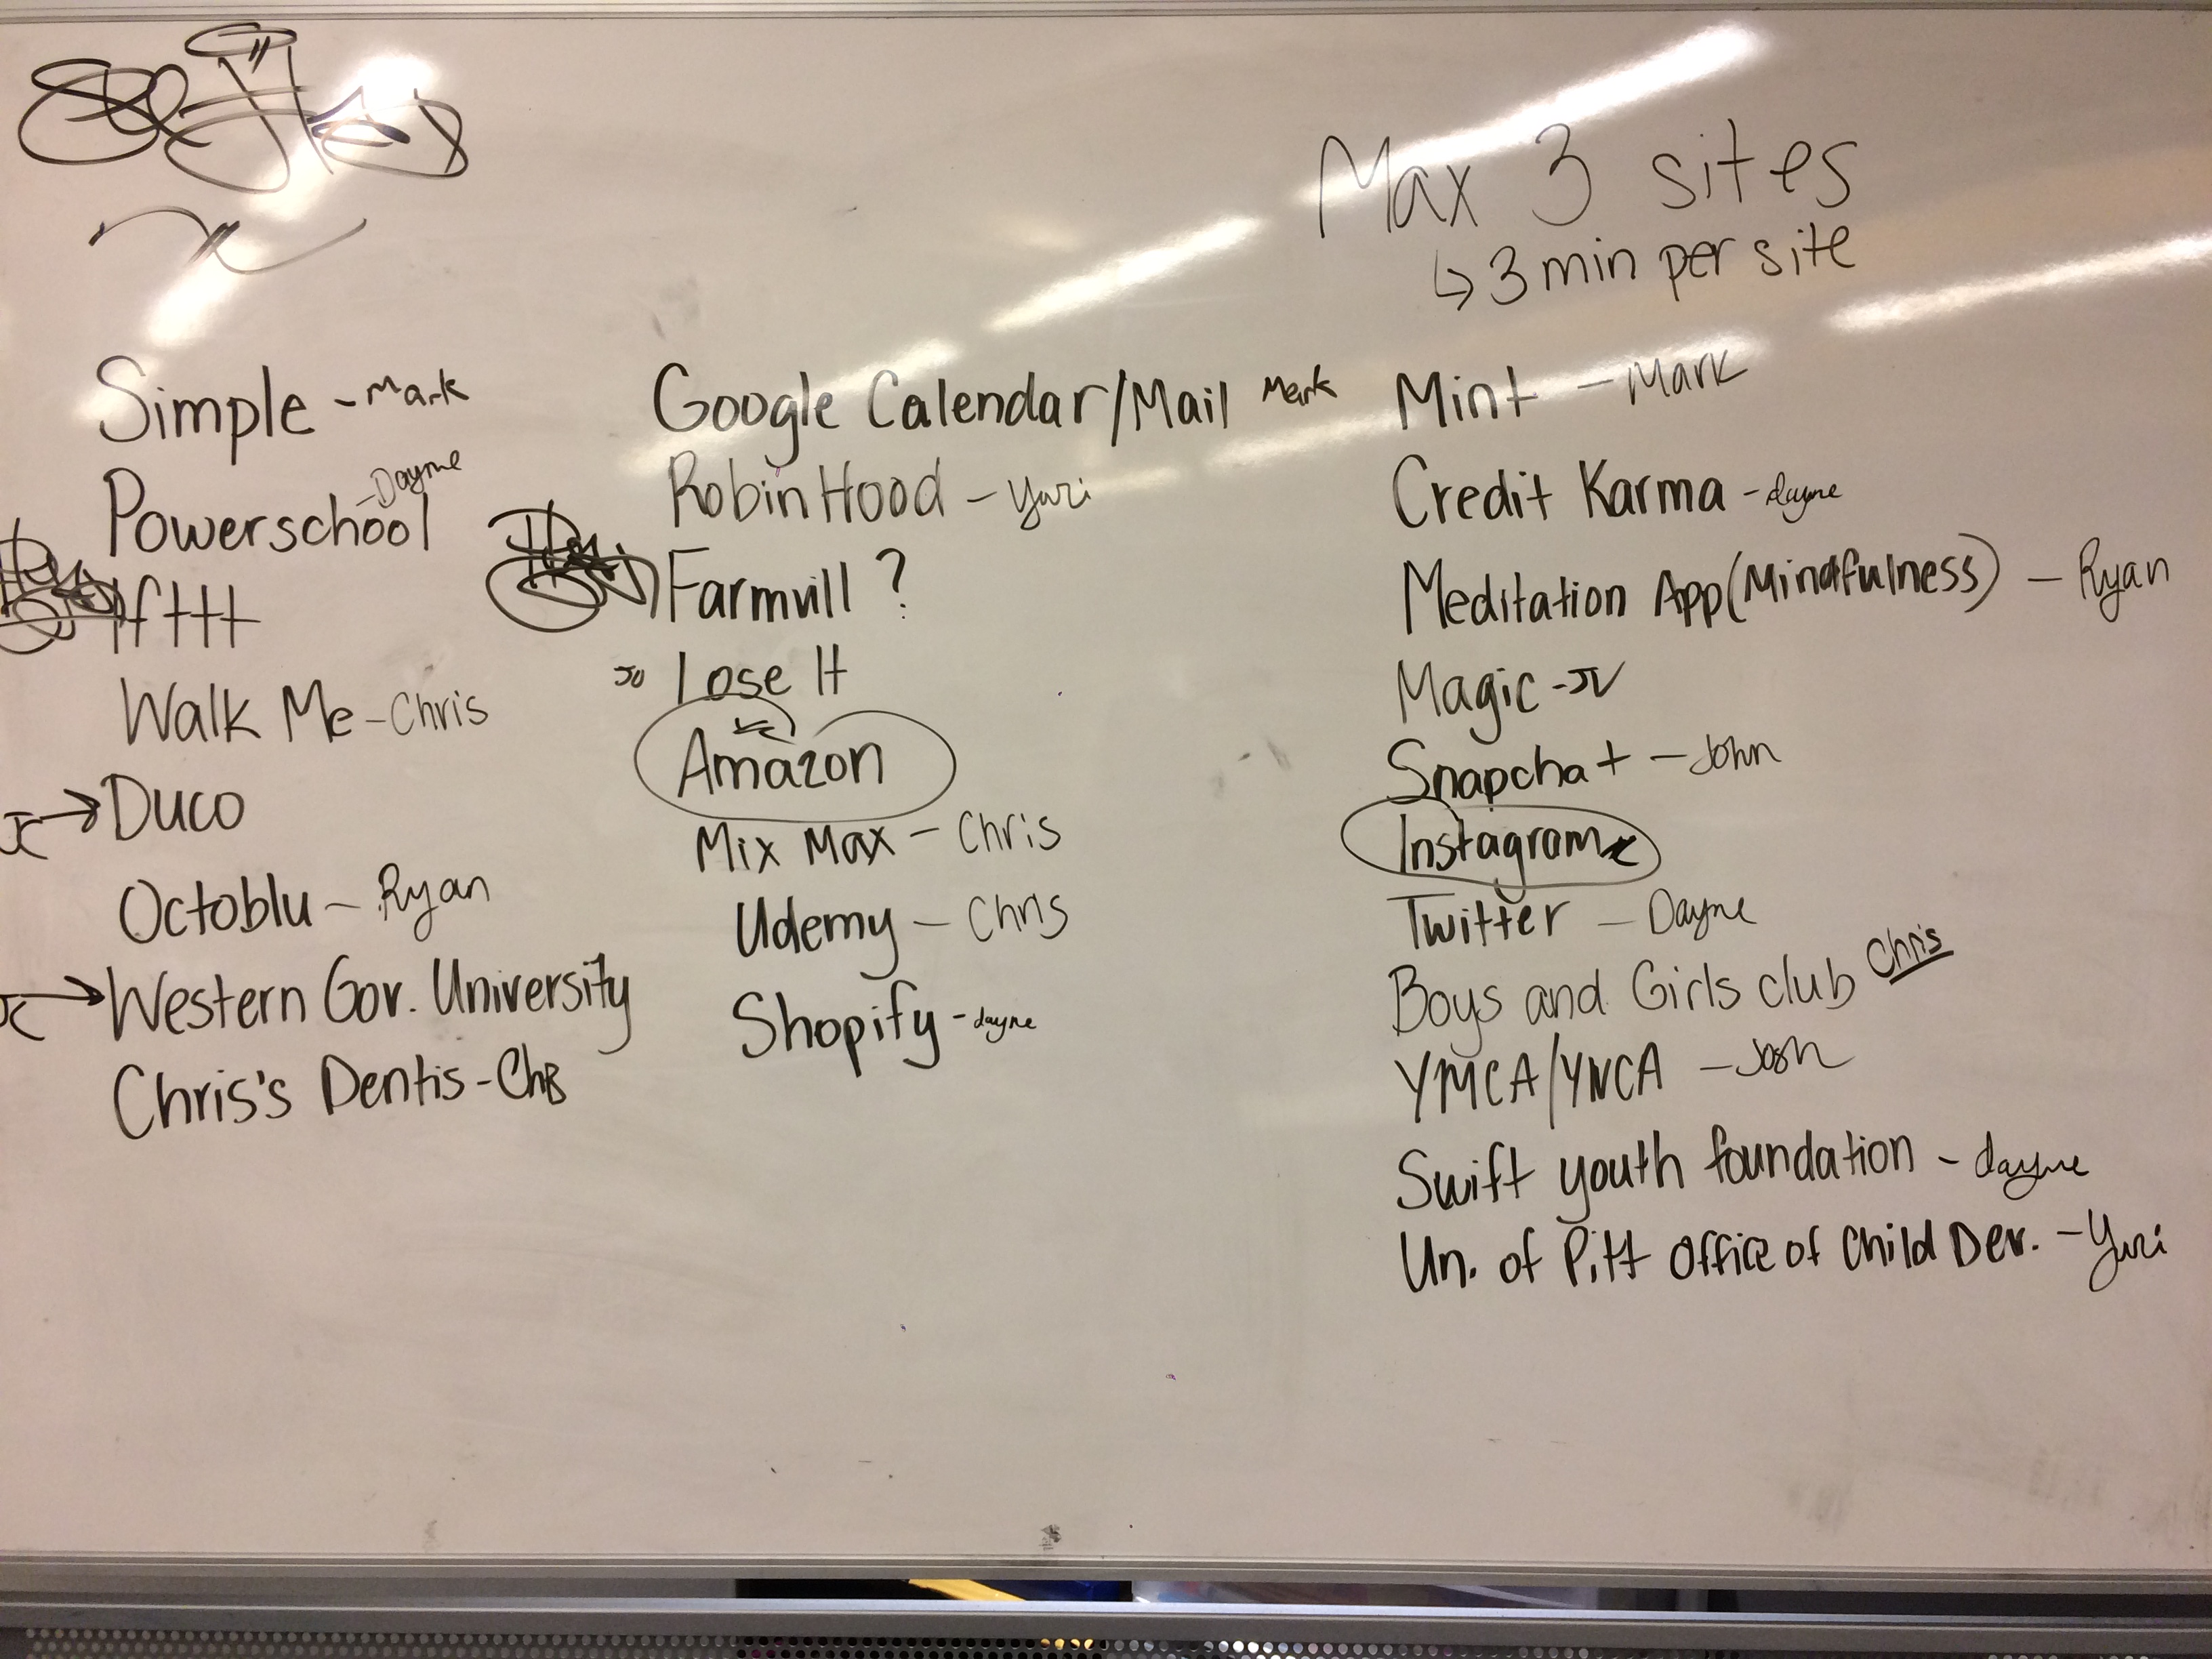 Max 3 sites
↳ 3 min per site
Simple - Mark
Powerschool - Dayne
Ifttt
Walk Me - Chris
→ Duco
Octoblu - Ryan
→ Western Gov. University
Chris's Dentis - Chris
Google Calendar/Mail Mark
Robin Hood - Yuri
Farmvill ?
Lose It
Amazon
Mix Max - Chris
Udemy - Chris
Shopify - dayne
Mint - Mark
Credit Karma - dayne
Meditation App (Mindfulness) - Ryan
Magic - JV
Snapchat - John
Instagram
Twitter - Dayne
Boys and Girls club Chris
YMCA/YWCA - Josh
Swift youth foundation - dayne
Un. of Pitt Office of Child Dev. - Yuri